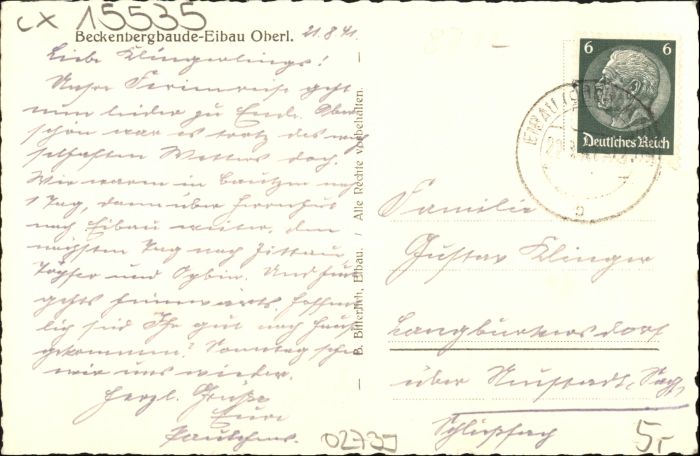 cx 15535
Beckenbergbaude-Eibau Oberl. 21.8.41.
Liebe Klingerlings!
Unsre Ferienreise geht
nun leider zu Ende. Aber
schön war es trotz des wech
selhaften Wetters doch.
Wir waren in Bautzen
1 Tag, dann über Herrnhut
nach Eibau weiter, den
nächsten Tag nach Zittau,
Töpfer und Oybin. Und heute
gehts heimwärts. Hoffent
lich seid Ihr gut nach Hause
gekommen? Sonntag sehen
wir uns wieder.
Herzl. Grüße
Eure
B. Bitterlich, Eibau. / Alle Rechte vorbehalten.
6 6
Deutsches Reich
EIBAU
Familie
Gustav Klinger
Langburkersdorf
über Neustadt, Sa.
02739
5,-